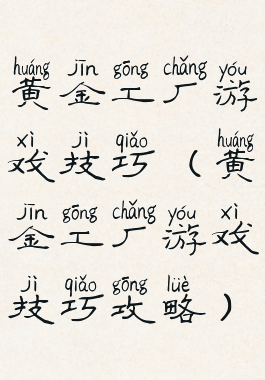 huáng jīn gōng chǎng yóu
黄金工厂游
xì jì qiǎo huáng
戏技巧（黄
jīn gōng chǎng yóu xì
金工厂游戏
jì qiǎo gōng lüè
技巧攻略）